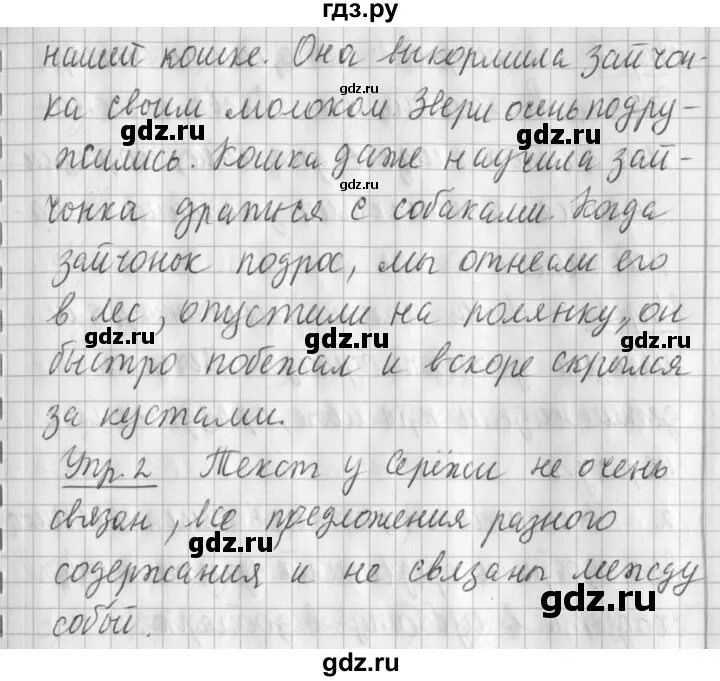 гдз.ру
нашей кошке. Она выкормила зайчон-
gdz.ru
ка своим молоком Звери очень подру-
gdz.ru
gdz.ru
жились. Кошка даже научила зай-
gdz.ru
чонка драться с собаками. Когда
зайчонок подрос, мы отнеали его
в лес, опустили на полянку, он
gdz.ru
gdz.ru
gdz.ru
быстро побежал и вскоре скрылся
за кустами.
Упр. 2 Текст у Серёжи не очень
связан, все предложения разного
gdz.ru
содержания и не связаны между
gdz.ru
собой.
gdz.ru
gdz.ru